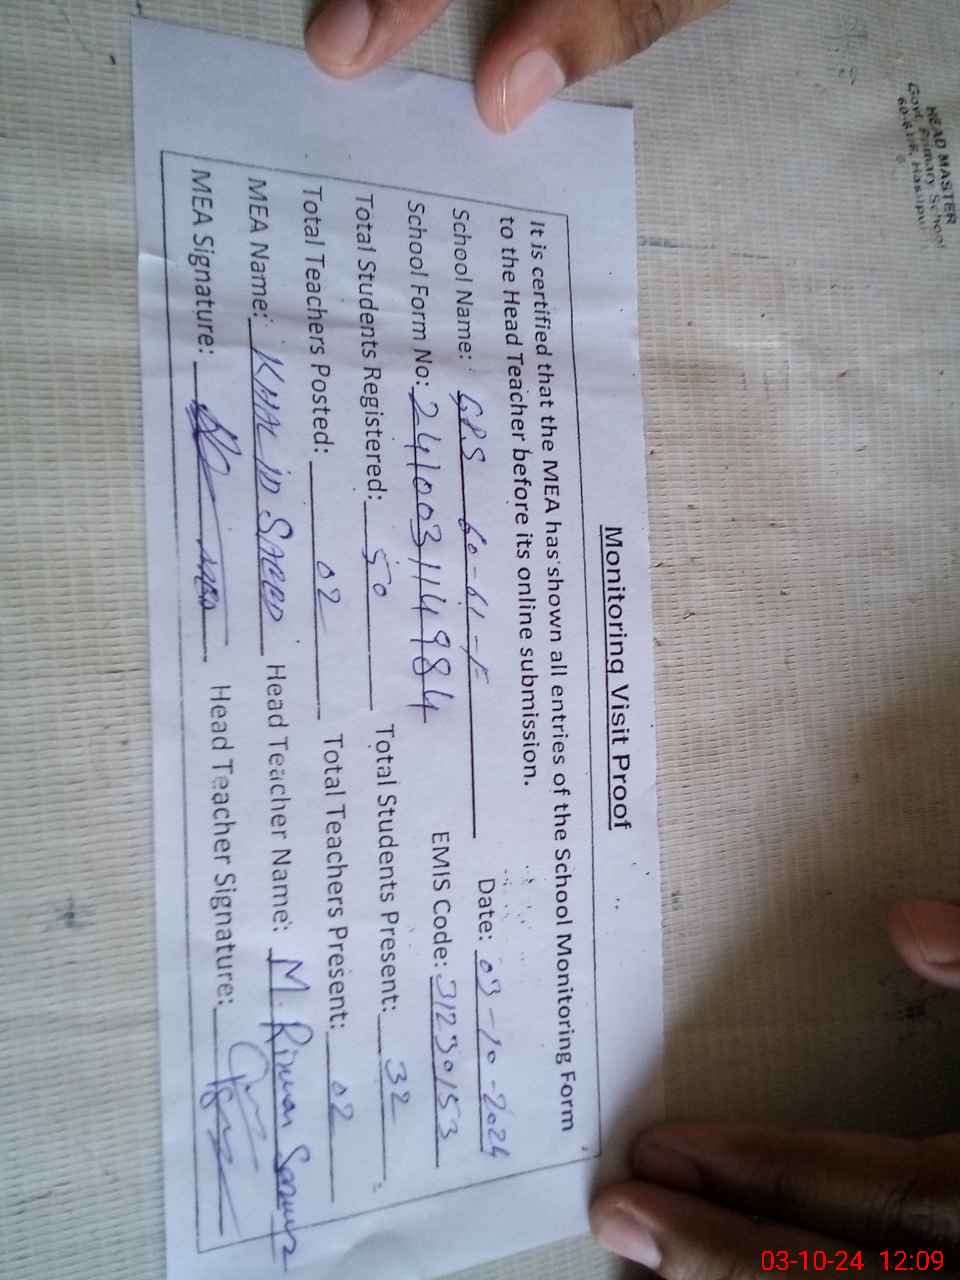 Monitoring Visit Proof
It is certified that the MEA has shown all entries of the School Monitoring Form
to the Head Teacher before its online submission.
School Name: GPS 60-61-F Date: 03-10-2024
School Form No: 241003114984 EMIS Code: 31230153
Total Students Registered: 50 Total Students Present: 32
Total Teachers Posted: 02 Total Teachers Present: 02
MEA Name: KHALID SAEED Head Teacher Name: M. Rizwan Sarwar
MEA Signature: Head Teacher Signature:
HEAD MASTER
Govt. Primary School
03-10-24 12:09